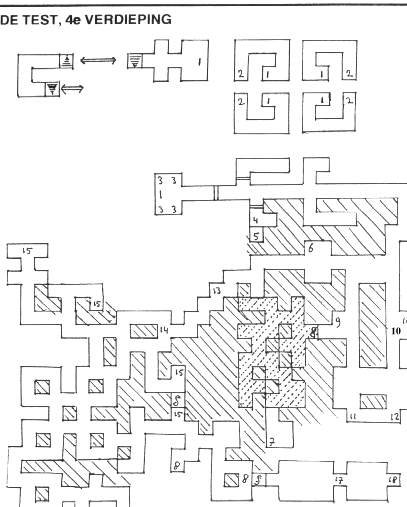 DE TEST, 4e VERDIEPING
1
2 1 1 2
2 1 1 2
3 3
1
3 3
4
5
6
15
13
15
14
8
9
10
15
8
15
11 12
7
8
8 8 17 18